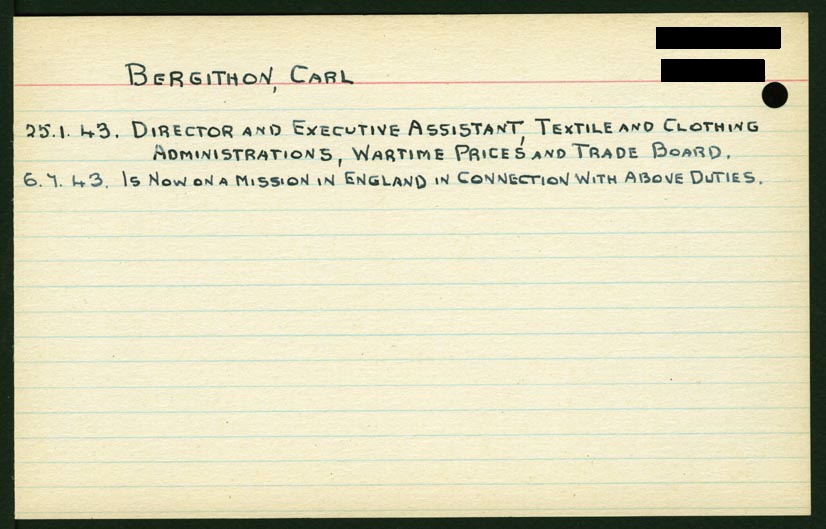 BERGITHON, CARL
25.1.43. DIRECTOR AND EXECUTIVE ASSISTANT, TEXTILE AND CLOTHING
ADMINISTRATIONS, WARTIME PRICES AND TRADE BOARD.
6.7.43. IS NOW ON A MISSION IN ENGLAND IN CONNECTION WITH ABOVE DUTIES.